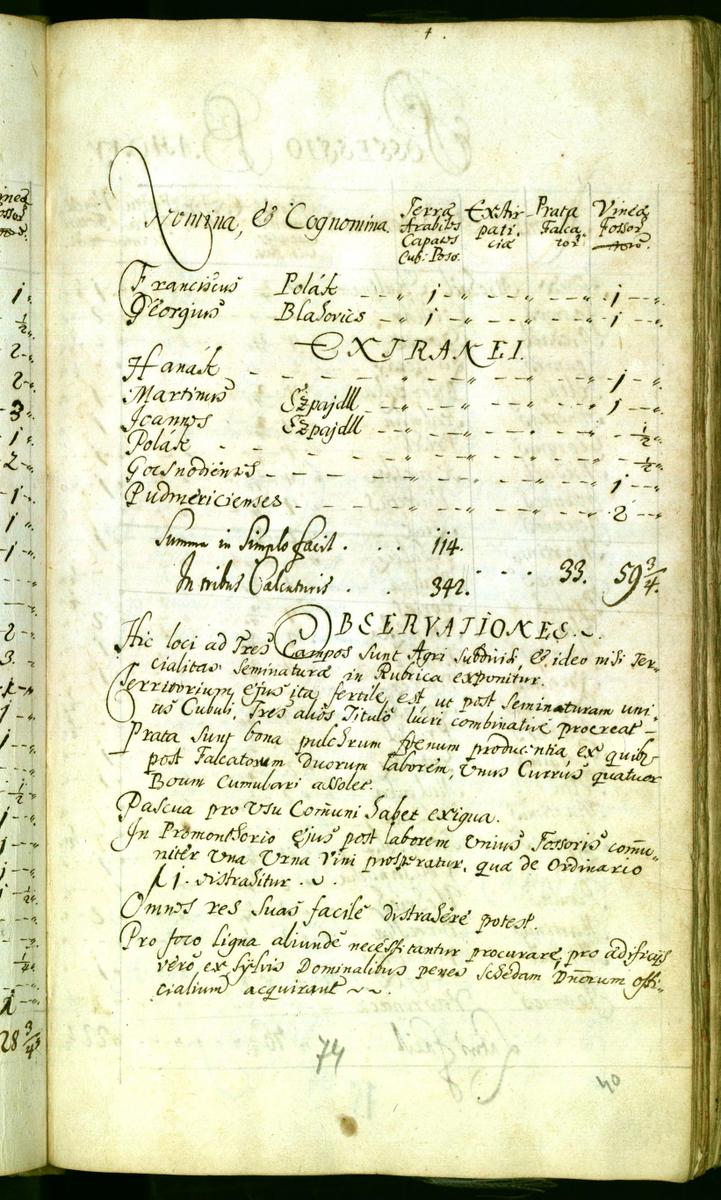 4.
Nomina, & Cognomina. Terræ Arabiles Capaces Cub: Poson. Exstirpatitiæ Prata Falcator: Vineæ Fossor:
Franciscus Polák - - " 1 " - - " - - " 1 - ".
Georgius Blahovics - - " 1 " - - " - - " 1 - ".
EXTRANEI.
Hanák - - " - " - - " - - " 1 - ".
Martinus Szpajdll - - " - " - - " - - " 1 - ".
Joannes Szpajdll - - " - " - - " - - " 1/2 - ".
Polák - - " - " - - " - - " 1/2 - ".
Gocsnodienses - - " - " - - " - - " 1 - ".
Pudmericienses - - " - " - - " - - " 2 - ".
Summa in Simplo facit . . . 114.
In tribus Calcaturis . . 342. . . . 33. 59 3/4.
OBSERVATIONES.
Hic loci ad Tres Campos sunt Agri subdivisi, & ideo nisi Ter-
cialitas Seminaturæ in Rubrica exponitur.
Territorium ejus ita fertile est ut post Seminaturam uni-
us Cubuli, Tres alios Titulo lucri combinative procreat -
Prata sunt bona pulchrum foenum producentia ex quib9
post Falcatorum duorum laborem, Unus Currus quatuor
Boum Cumulari assolet.
Pascua pro Usu Com̃uni habet exigua.
In Promonthorio ejus post laborem Unius Fossoris com̃u-
niter Una Urna Vini prosperatur, quæ de Ordinario
f 1. distrahitur.
Omnes res suas facile distrahere potest.
Pro foco Ligna aliunde necessitantur procurare, pro ædificijs
vero ex Sylvis Dominalibus penes Schedam Dñorum offi-
cialium acquirunt
74
40
1
1/2
2
2
3
1
2
1
1
1
2
3
1
1
1
1/2
1
1
1
1/2
1/4
1
28 3/4